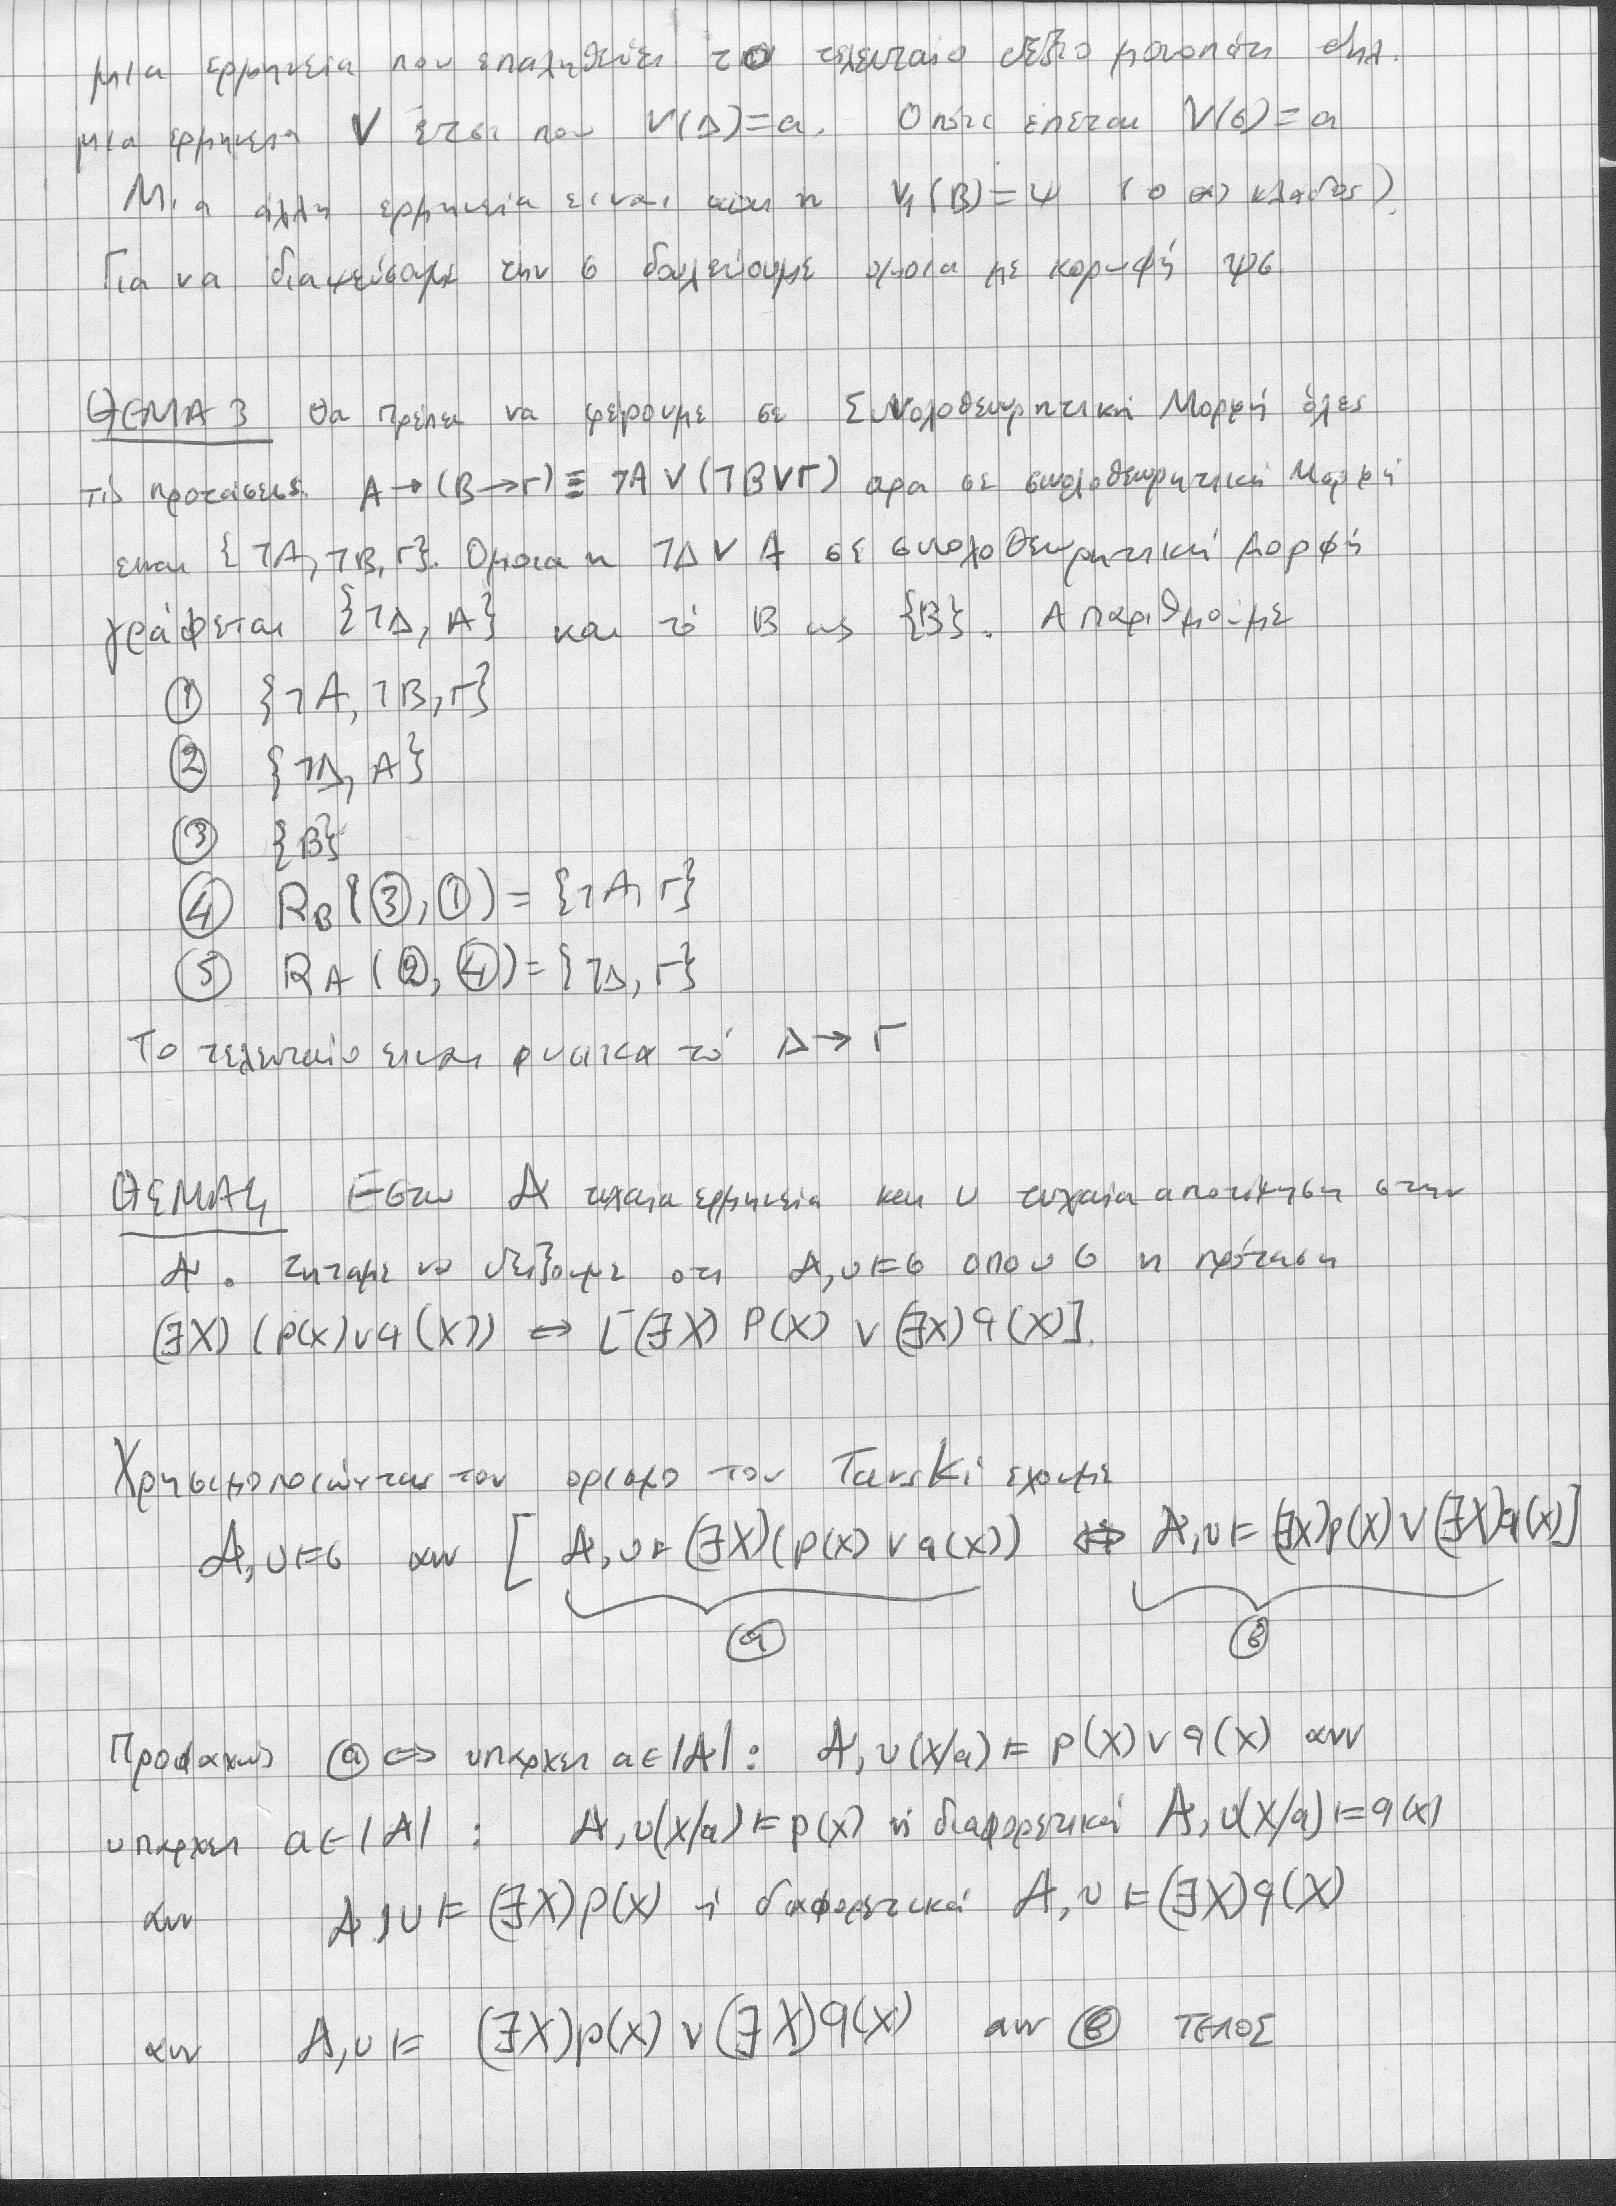 μια ερμηνεία που επαληθεύει το τελευταίο δεξιο μονοπάτι δηλ.
μια ερμηνεια V ετσι που V(Δ)=α. Οπότε έπεται V(σ)=α
Μια άλλη ερμηνεία ειναι και η V₁(B)=ψ (ο κλαδος).
Για να διαψεύσουμε την σ δουλεύουμε όμοια με κορυφή ψσ
ΘΕΜΑ 3 Θα πρέπει να φέρουμε σε Συνολοθεωρητική Μορφή όλες
τις προτάσεις. A → (B → Γ) ≡ ¬A ∨ (¬B ∨ Γ) αρα σε συνολοθεωρητική Μορφή
ειναι {¬A, ¬B, Γ}. Ομοια η ¬Δ ∨ A σε συνολοθεωρητική μορφή
γράφεται {¬Δ, A} και τό B ως {B}. Απαριθμούμε
① {¬A, ¬B, Γ}
② {¬Δ, A}
③ {B}
④ R_B (③, ①) = {¬A, Γ}
⑤ R_A (②, ④) = {¬Δ, Γ}
Το τελευταίο ειναι φυσικα τό Δ → Γ
ΘΕΜΑ 4 Εστω A τυχαια ερμηνεία και υ τυχαία αποτίμηση στην
A. Ζηταμε να δείξουμε οτι A, υ ⊨ σ οπου σ η πρόταση
(∃X) (p(x) ∨ q(X)) ⇔ [(∃X) P(X) ∨ (∃x) q(X)].
Χρησιμοποιώντας τον ορισμο του Tarski εχουμε
A, υ ⊨ σ ανν [ A, υ ⊨ (∃X)(p(x) ∨ q(x)) ⇔ A, υ ⊨ (∃x)p(x) ∨ (∃X)q(x)]
ⓐ ⓑ
Προφανώς ⓐ ⇔ υπαρχει a ∈ |A| : A, υ(x/a) ⊨ p(X) ∨ q(X) ανν
υπαρχει a ∈ |A| : A, υ(x/a) ⊨ p(x) ή διαφορετικά A, υ(x/a) ⊨ q(x)
ανν A, υ ⊨ (∃X)p(x) ή διαφορετικά A, υ ⊨ (∃X)q(X)
ανν A, υ ⊨ (∃X)p(x) ∨ (∃X)q(x) ανν ⓑ ΤΕΛΟΣ